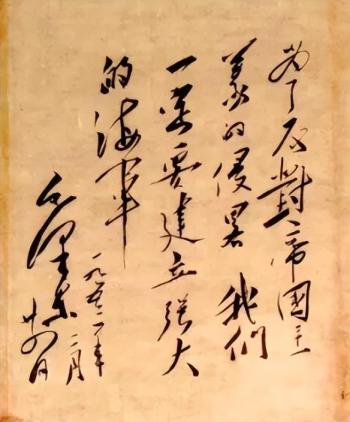 为了反對帝國主
義的侵畧我們
一定要建立强大
的海军
一九五三年二月
廿四日
毛澤东